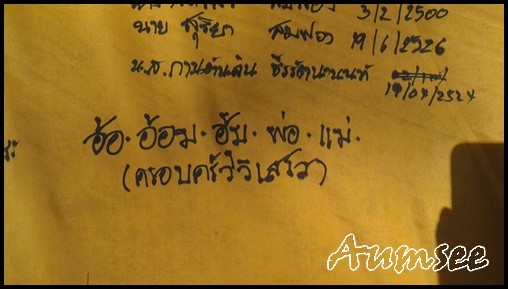 3/2/2500
นาย สุริยา สมพงา 19/6/2526
น.ส. กานต์นลิน ธีรรัตนานนท์
19/07/2524
อ้อ. อ้อม. อั๋น. พ่อ. แม่.
(ครอบครัว
Aumsee